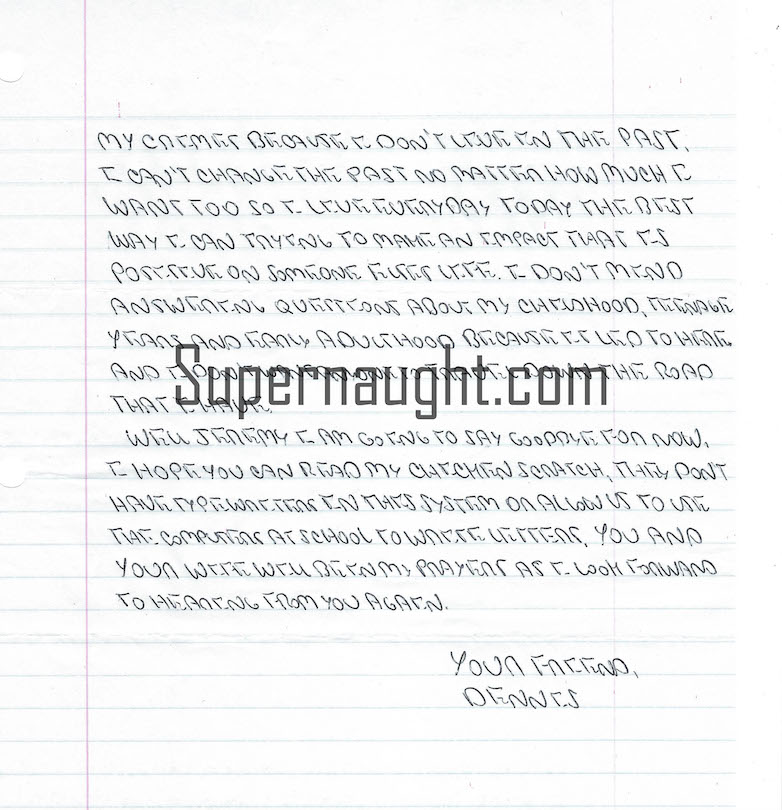 MY CRIMES BECAUSE I DON'T LIVE IN THE PAST.
I CAN'T CHANGE THE PAST NO MATTER HOW MUCH I
WANT TOO SO I LIVE EVERYDAY TODAY THE BEST
WAY I CAN TRYING TO MAKE AN IMPACT THAT IS
POSITIVE ON SOMEONE ELSES LIFE. I DON'T MIND
ANSWERING QUESTIONS ABOUT MY CHILDHOOD, TEENAGE
YEARS AND EARLY ADULTHOOD BECAUSE IT LED TO HERE
AND I DON'T WANT ANYONE TO TRAVEL DOWN THE ROAD
THAT I HAVE.
Supernaught.com
WELL JEREMY I AM GOING TO SAY GOODBYE FOR NOW.
I HOPE YOU CAN READ MY CHICKEN SCRATCH, THEY DON'T
HAVE TYPEWRITERS IN THIS SYSTEM OR ALLOW US TO USE
THE COMPUTERS AT SCHOOL TO WRITE LETTERS. YOU AND
YOUR WIFE WILL BE IN MY PRAYERS AS I LOOK FORWARD
TO HEARING FROM YOU AGAIN.
YOUR FRIEND,
DENNIS